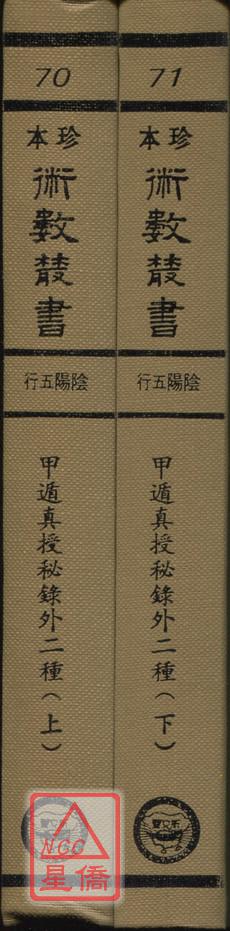 70
珍本
術數叢書
陰陽五行
甲遁真授秘錄外二種（上）
71
珍本
術數叢書
陰陽五行
甲遁真授秘錄外二種（下）
NCC
星僑